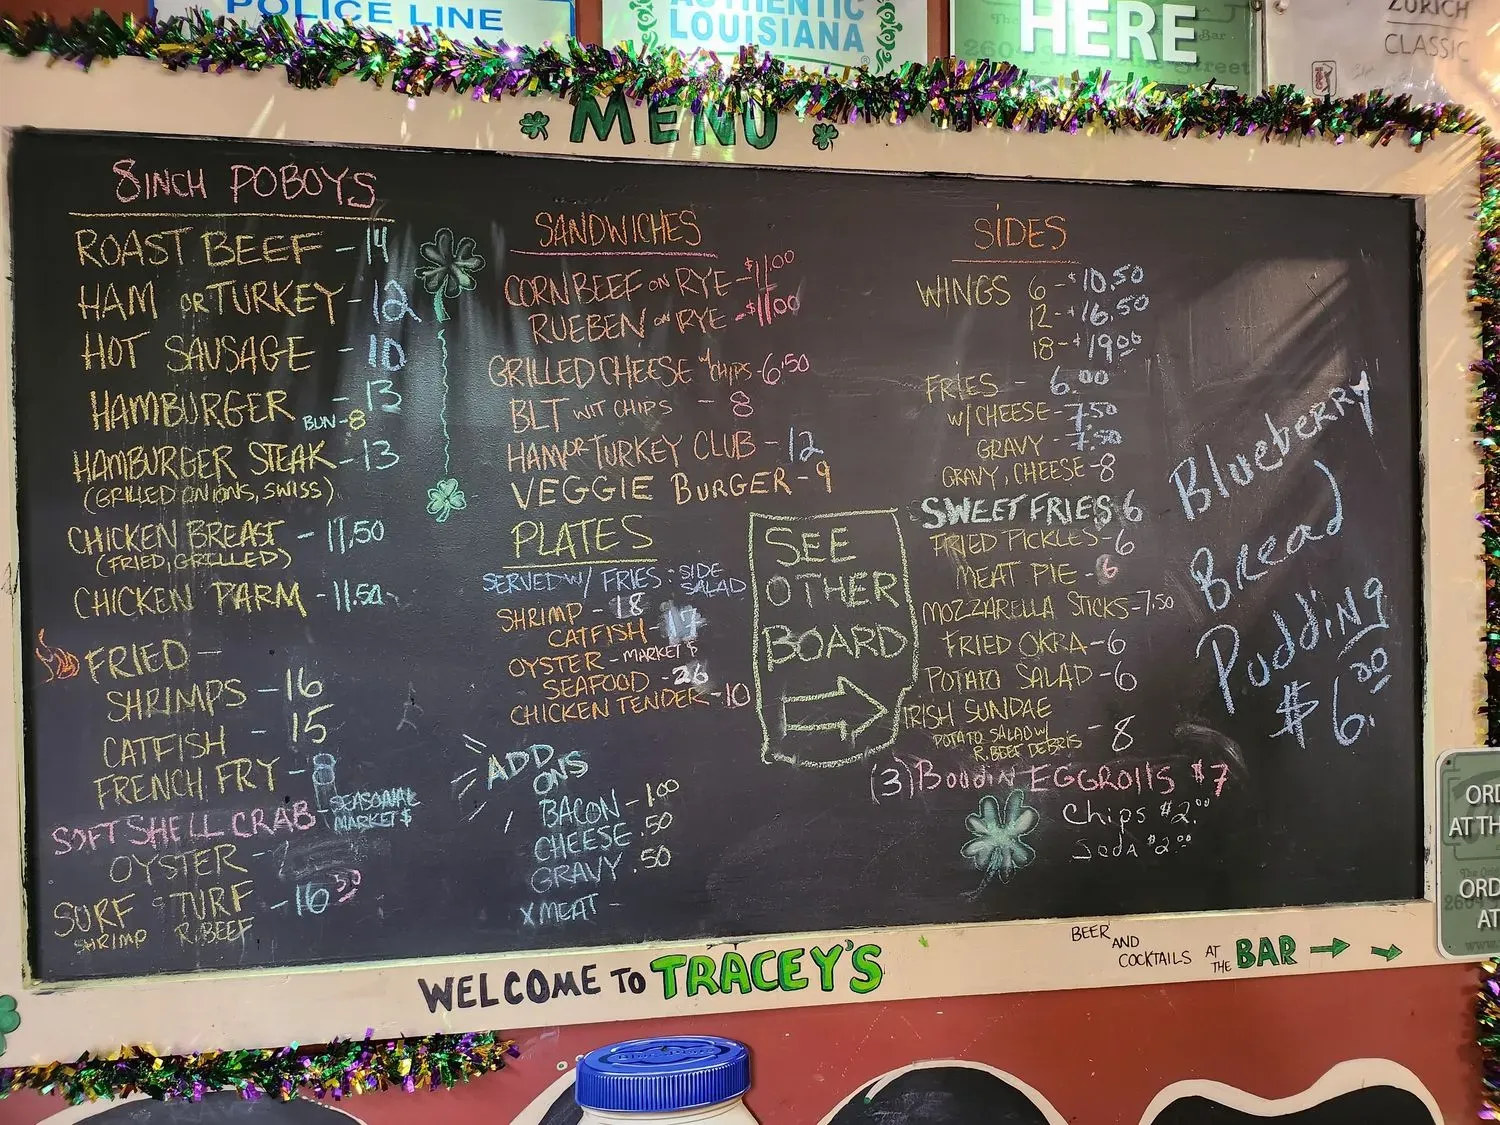 POLICE LINE
AUTHENTIC
LOUISIANA
HERE
ZURICH
CLASSIC
MENU
8 INCH POBOYS
ROAST BEEF - 14
HAM OR TURKEY - 12
HOT SAUSAGE - 10
HAMBURGER - 13
BUN - 8
HAMBURGER STEAK - 13
(GRILLED ONIONS, SWISS)
CHICKEN BREAST - 11.50
(FRIED, GRILLED)
CHICKEN PARM - 11.50
FRIED -
SHRIMPS - 16
CATFISH - 15
FRENCH FRY - 8
SOFT SHELL CRAB - SEASONAL
MARKET $
OYSTER -
SURF & TURF - 16.50
SHRIMP R.BEEF
SANDWICHES
CORN BEEF ON RYE - $11.00
RUEBEN ON RYE - $11.00
GRILLED CHEESE W/ CHIPS - 6.50
BLT WIT CHIPS - 8
HAM OR TURKEY CLUB - 12
VEGGIE BURGER - 9
PLATES
SERVED W/ FRIES & SIDE
SALAD
SHRIMP - 18
CATFISH - 17
OYSTER - MARKET $
SEAFOOD - 26
CHICKEN TENDER - 10
ADD
ONS
BACON - 1.00
CHEESE .50
GRAVY .50
X MEAT -
SEE
OTHER
BOARD
SIDES
WINGS 6 - $10.50
12 - $16.50
18 - $19.00
FRIES - 6.00
W/ CHEESE - 7.50
GRAVY - 7.50
GRAVY, CHEESE - 8
SWEET FRIES 6
FRIED PICKLES - 6
MEAT PIE - 6
MOZZARELLA STICKS - 7.50
FRIED OKRA - 6
POTATO SALAD - 6
IRISH SUNDAE
POTATO SALAD W/
R.BEEF DEBRIS - 8
(3) Boudin EGGROllS $7
Chips $2.00
Soda $2.00
Blueberry
Bread
Pudding
$6.00
WELCOME TO TRACEY'S
BEER AND
COCKTAILS AT
THE BAR
ORD
AT TH
ORD
AT